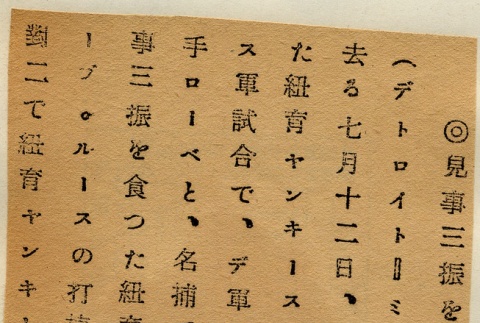 ◎見事三振を
（デトロイト＝ミ
去る七月十二日、
た紐育ヤンキース
ス軍試合で、デ軍
手ローベと、名捕
事三振を食つた紐育
ーブ。ルースの打
對二で紐育ヤンキ